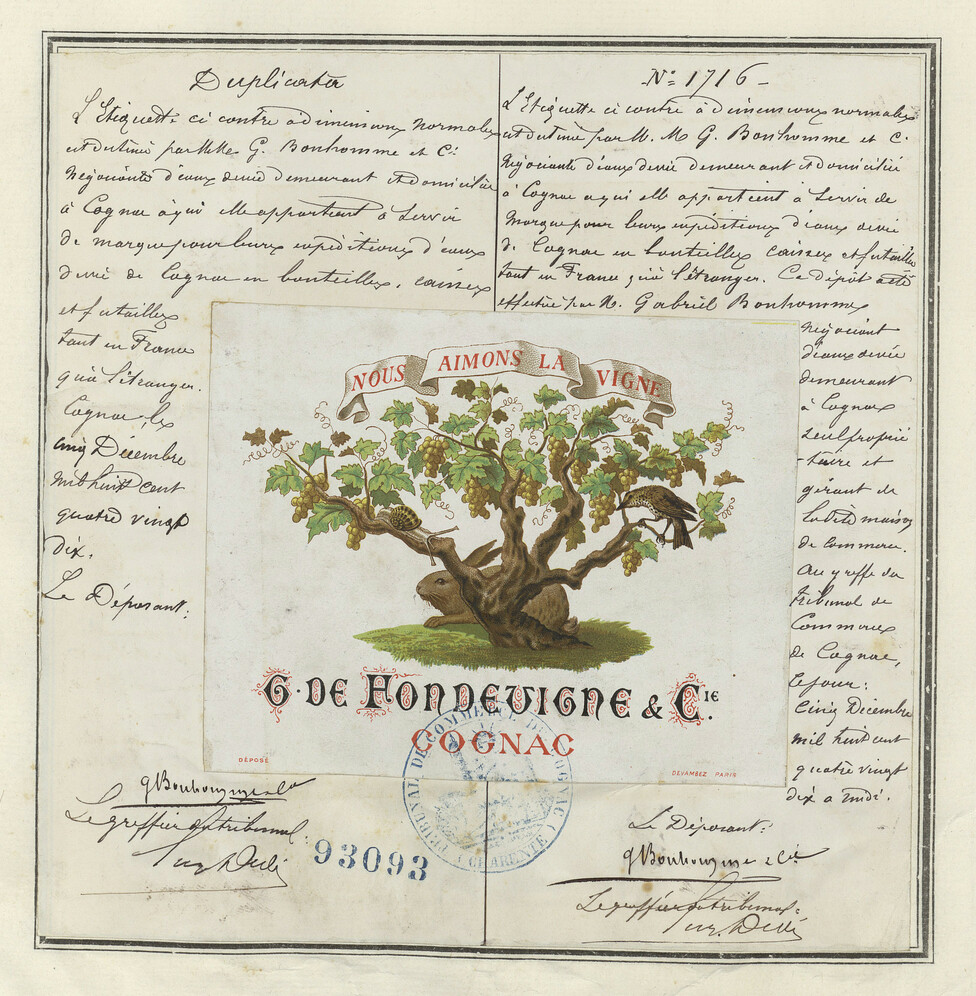 Duplicata
L'Etiquette ci contre à dimensions normales
est destinée par M.M. G. Bonhomme et Cie
Négociants d'eaux devie demeurant et domiciliés
à Cognac à qui elle appartient à Servir
de marque pour leurs expéditions d'eaux
devie de Cognac en bouteilles, caisses
et futailles
tant en France
qu'à l'étranger.
Cognac, le
cinq Décembre
mil huit cent
quatre vingt
dix.
Le Déposant:
G Bonhomme & Cie
Le greffier du tribunal
93093
N° 1716
L'Etiquette ci contre à dimensions normales
est destinée par M. M G. Bonhomme et Cie
Négociants d'eaux devie demeurant et domiciliés
à Cognac a qui elle appartient à Servir de
Marque pour leurs expéditions d'eaux devie
de Cognac en bouteilles caisses et futailles
tant en France qu'à l'étranger. Ce dépôt a été
effectué par M. Gabriel Bonhomme
négociant
d'eaux devie
demeurant
à Cognac
seul proprié
-taire et
gérant de
ladite maison
de commerce.
Au greffe du
tribunal de
Commerce
de Cognac,
le jour:
Cinq Décembre
mil huit cent
quatre vingt
dix a midi.
Le Déposant:
G Bonhomme & Cie
Le greffier du tribunal:
NOUS AIMONS LA VIGNE
G. DE HONDEVIGNE & CIE.
COGNAC
DÉPOSÉ
DEVAMBEZ PARIS
TRIBUNAL DE COMMERCE DE COGNAC
(CHARENTE)